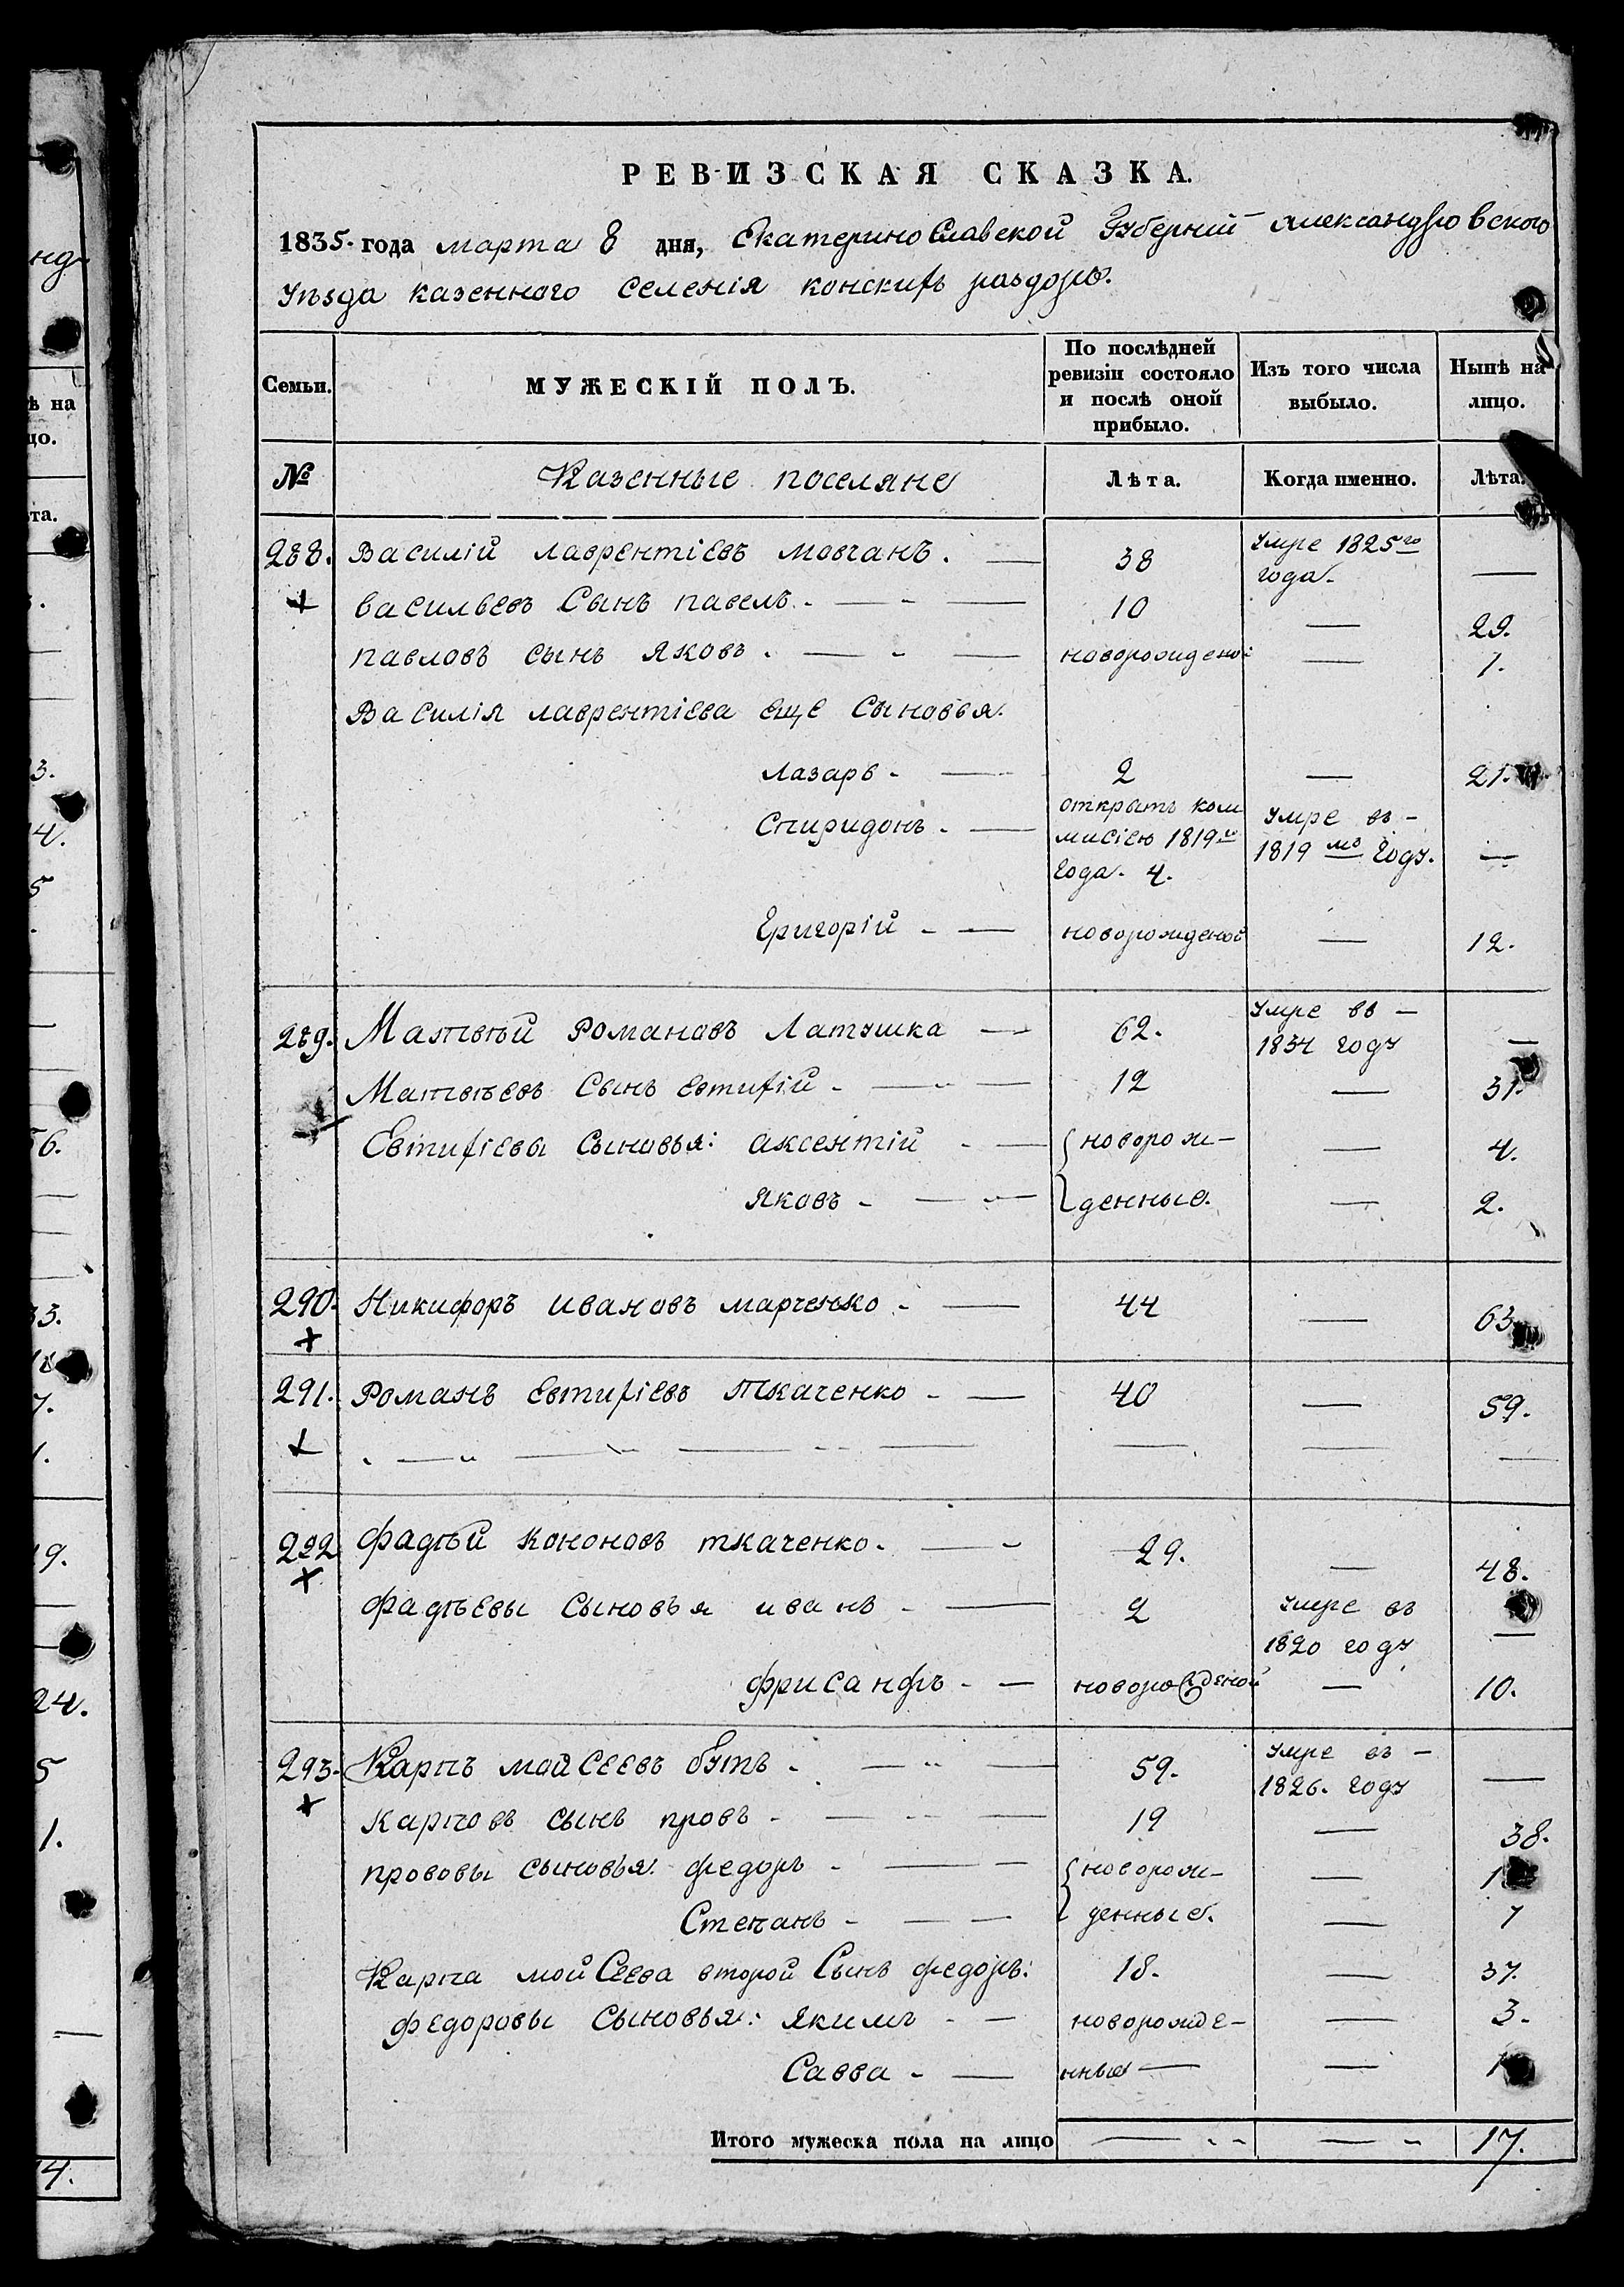 РЕВИЗСКАЯ СКАЗКА.
1835. года марта 8 дня, Екатеринославской Губерний Александровского
Уѣзда казенного селенія конскихъ раздоръ.
Семьи. МУЖЕСКІЙ ПОЛЪ. По послѣдней ревизіи состояло и послѣ оной прибыло. Изъ того числа выбыло. Нынѣ на лицо.
№ Казенные поселяне Лѣта. Когда именно. Лѣта.
288. Василій лаврентіевъ мовчанъ. — 38 Умре 1825го года. —
+ васильевъ Сынъ павелъ. — — 10 — 29.
павловъ сынъ яковъ. — — новорожденой — 1.
Василія лаврентіева еще сыновья.
Лазарь - — 2 — 21.
Спиридонъ. — открытъ коммисіею 1819го года. 4. Умре въ - 1819мъ году. —
Григорій - — новорожденой — 12.
289. Матвѣй Романовъ Латушка — 62. Умре въ — 1834 году —
Матвѣевъ Сынъ евтихій - — — 12 — 31.
Евтихіевы сыновья: аксентій - — { новорож- — 4.
яковъ - — — { денные. — 2.
290. Никифоръ ивановъ марченко. — 44 — 63
+
291. Романъ евтихіевъ ткаченко - — 40 — 59.
+ — — — — — — —
292 фадѣй кононовъ ткаченко. — 29. — 48.
+
фадѣевы сыновья иванъ - — 2 умре въ 1820 году —
фрисанфъ - — новорожденой — 10.
293. Карпъ мойсеевъ бутъ. — — 59. Умре въ — 1826. году —
+
карповъ сынъ провъ - — — 19 — 38.
прововы сыновья: федоръ - — — { новорож- — 1
Степанъ - — — { денные. — 7
Карпа мойсеева второй Сынъ федоръ: 18. — 37.
федоровы сыновья: якимъ - — новорожде- — 3.
Савва - — нные — — 1
Итого мужеска пола на лицо — — 17.
нд
ѣ на
цо.
та.
3.
4.
5
56.
33.
7.
1.
19.
24.
5
1.
14.